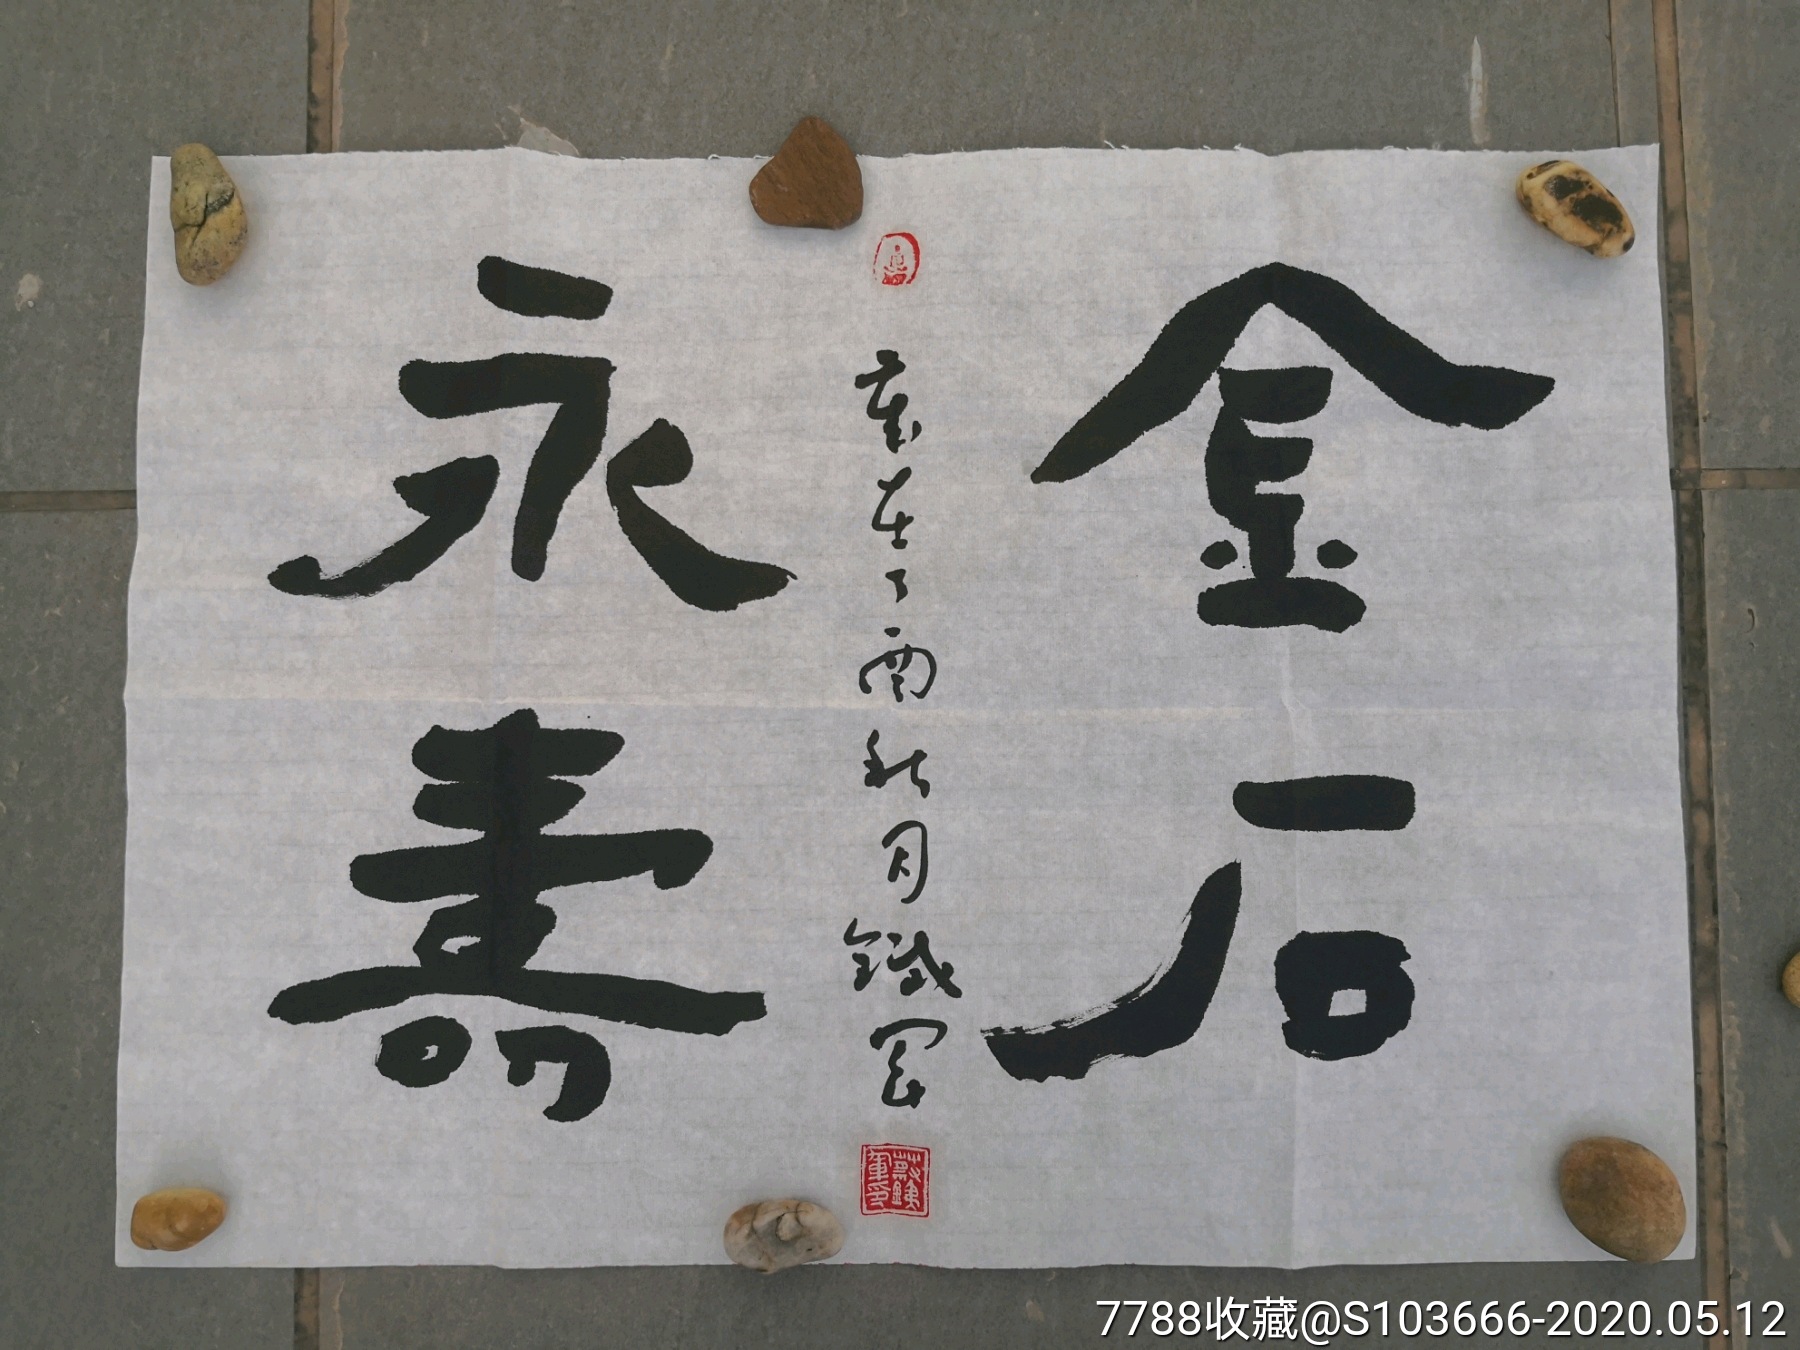 金石
永壽
歲在丁酉秋月鐵軍
7788收藏@S103666-2020.05.12